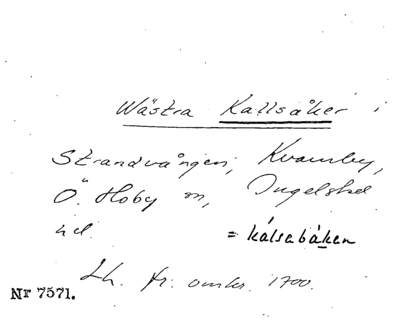 Wästra Kallsåker i
Strandvången, Kvarnby,
Ö. Hoby sn, Ingelstad
hd. = kálsabáken
Lh. fr. omkr. 1700.
Nr 7571.